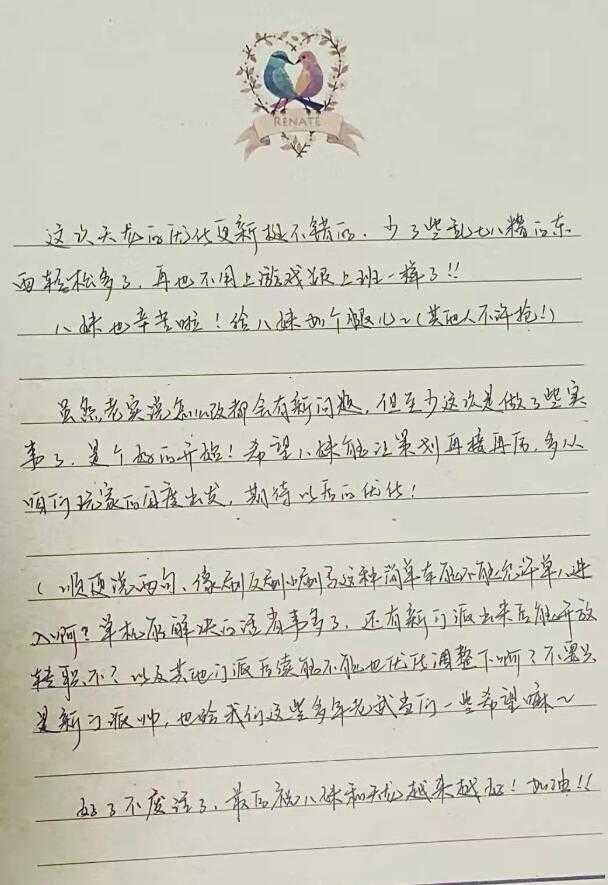 RENATE
这次天龙的优化更新挺不错的，少了些乱七八糟的东
西轻松多了，再也不用上游戏跟上班一样了!!
八妹也辛苦啦！给八妹两个暖心～(其他人不许抢!)
虽然老实说怎么改都会有新问题，但至少这次是做了些实
事了，是个好的开始！希望八妹能让策划再接再厉，多从
咱们玩家的角度出发，期待以后的优化！
(顺便说两句，像刷反刷小刷马这种简单本能不能允许单人进
入啊？单机能解决的话省事多了，还有新门派出来后能开放
转职不？以及其他门派后续能不能也优化调整下啊？不要只
是新门派帅，也给我们这些多年老武当们一些希望嘛～
好了不废话了，最后祝八妹和天龙越来越好！加油!!